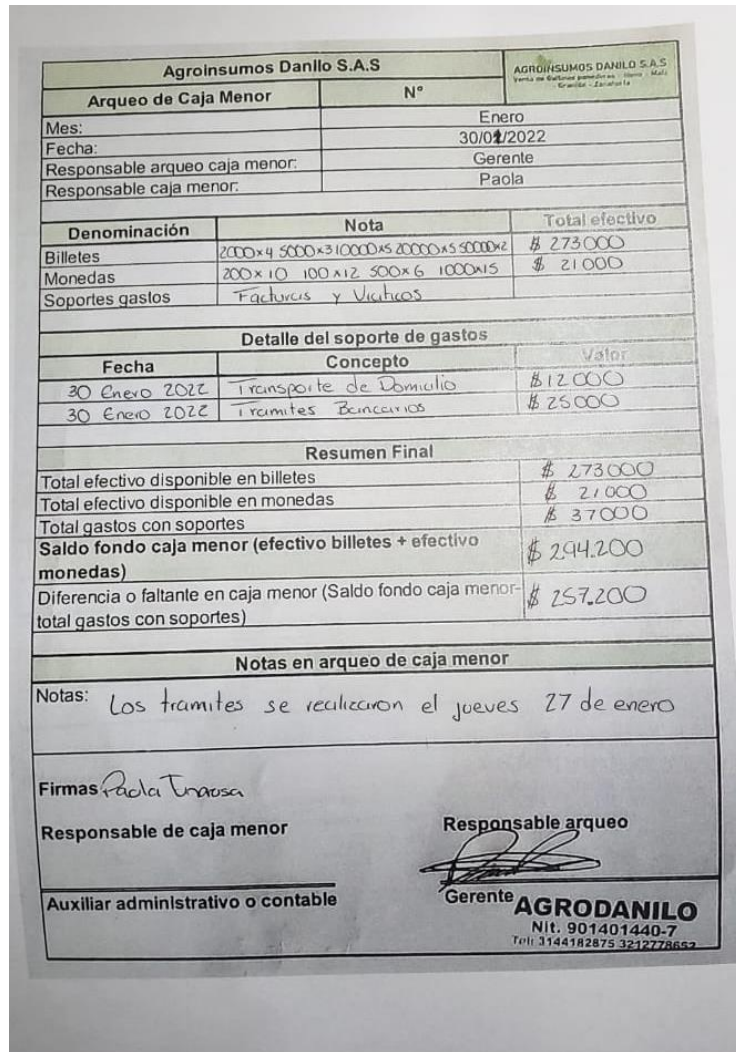 Agroinsumos Danilo S.A.S
AGROINSUMOS DANILO S.A.S
Venta de Gallinas ponedoras
Arqueo de Caja Menor N°
Mes: Enero
Fecha: 30/01/2022
Responsable arqueo caja menor: Gerente
Responsable caja menor: Paola
Denominación Nota Total efectivo
Billetes 2000x4 5000x3 10000x5 20000x5 50000x2 $ 273000
Monedas 200x10 100x12 500x6 1000x15 $ 21000
Soportes gastos Facturas y Viaticos
Detalle del soporte de gastos
Fecha Concepto Valor
30 Enero 2022 Transporte de Domicilio $12000
30 Enero 2022 Tramites Bancarios $ 25000
Resumen Final
Total efectivo disponible en billetes $ 273000
Total efectivo disponible en monedas $ 21000
Total gastos con soportes $ 37000
Saldo fondo caja menor (efectivo billetes + efectivo
monedas) $ 294.200
Diferencia o faltante en caja menor (Saldo fondo caja menor-
total gastos con soportes) $ 257.200
Notas en arqueo de caja menor
Notas: Los tramites se realizaron el jueves 27 de enero
Firmas Paola
Responsable de caja menor Responsable arqueo
Auxiliar administrativo o contable Gerente
AGRODANILO
Nit. 901401440-7
Tel: 3144182875 3212778652